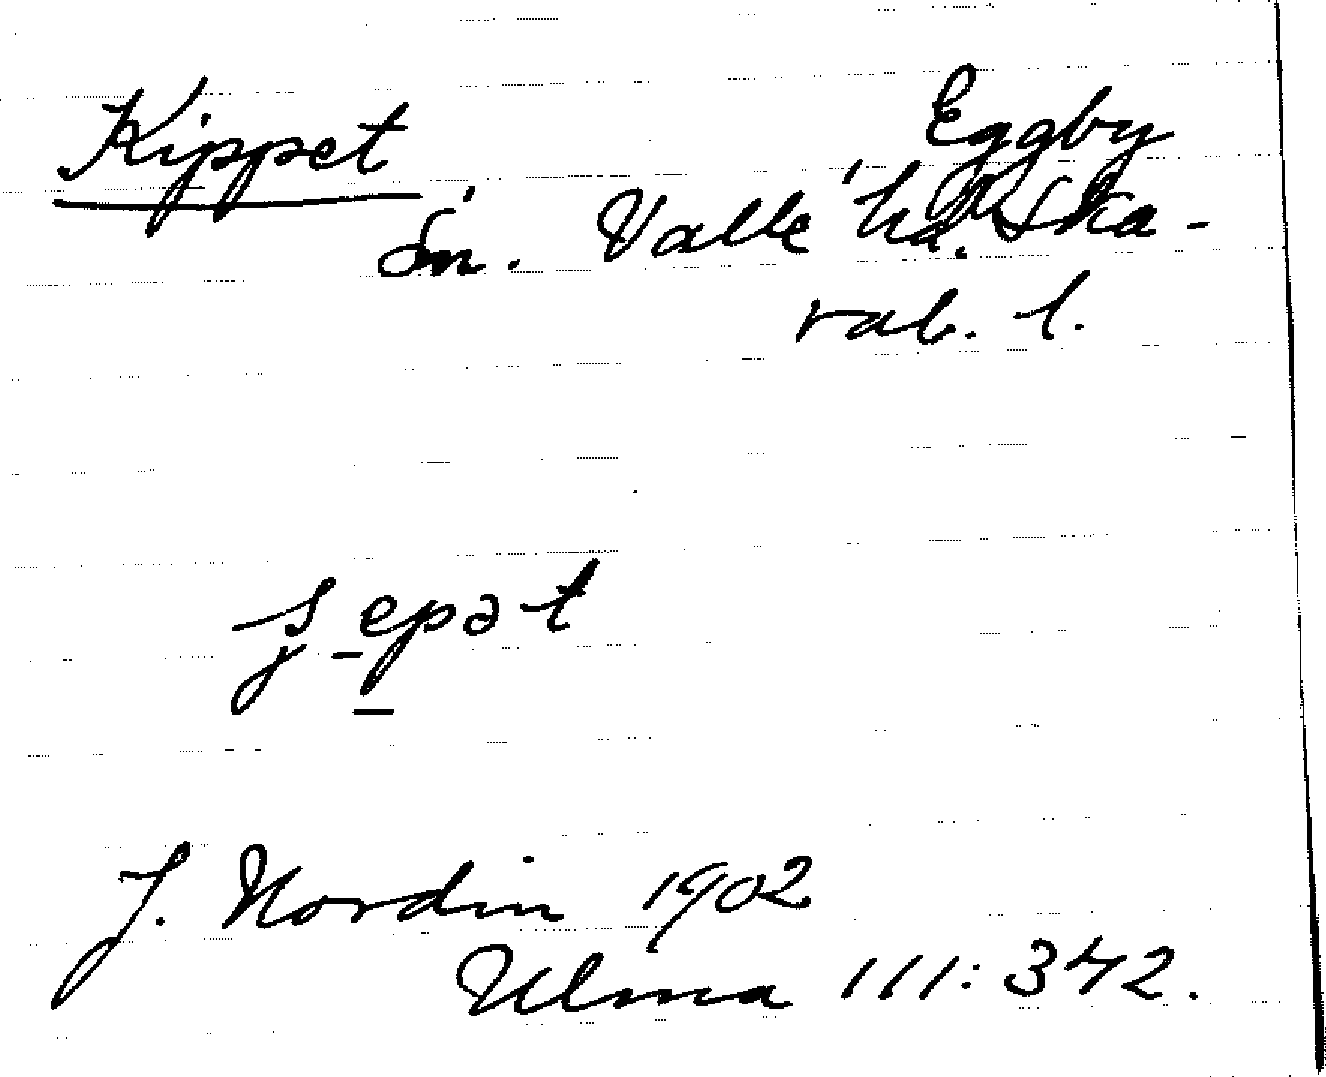 Kippet Eggby
sn. Valle hd. Ska-
rab. l.
J. Nordin 1902
Ulma 111: 342.